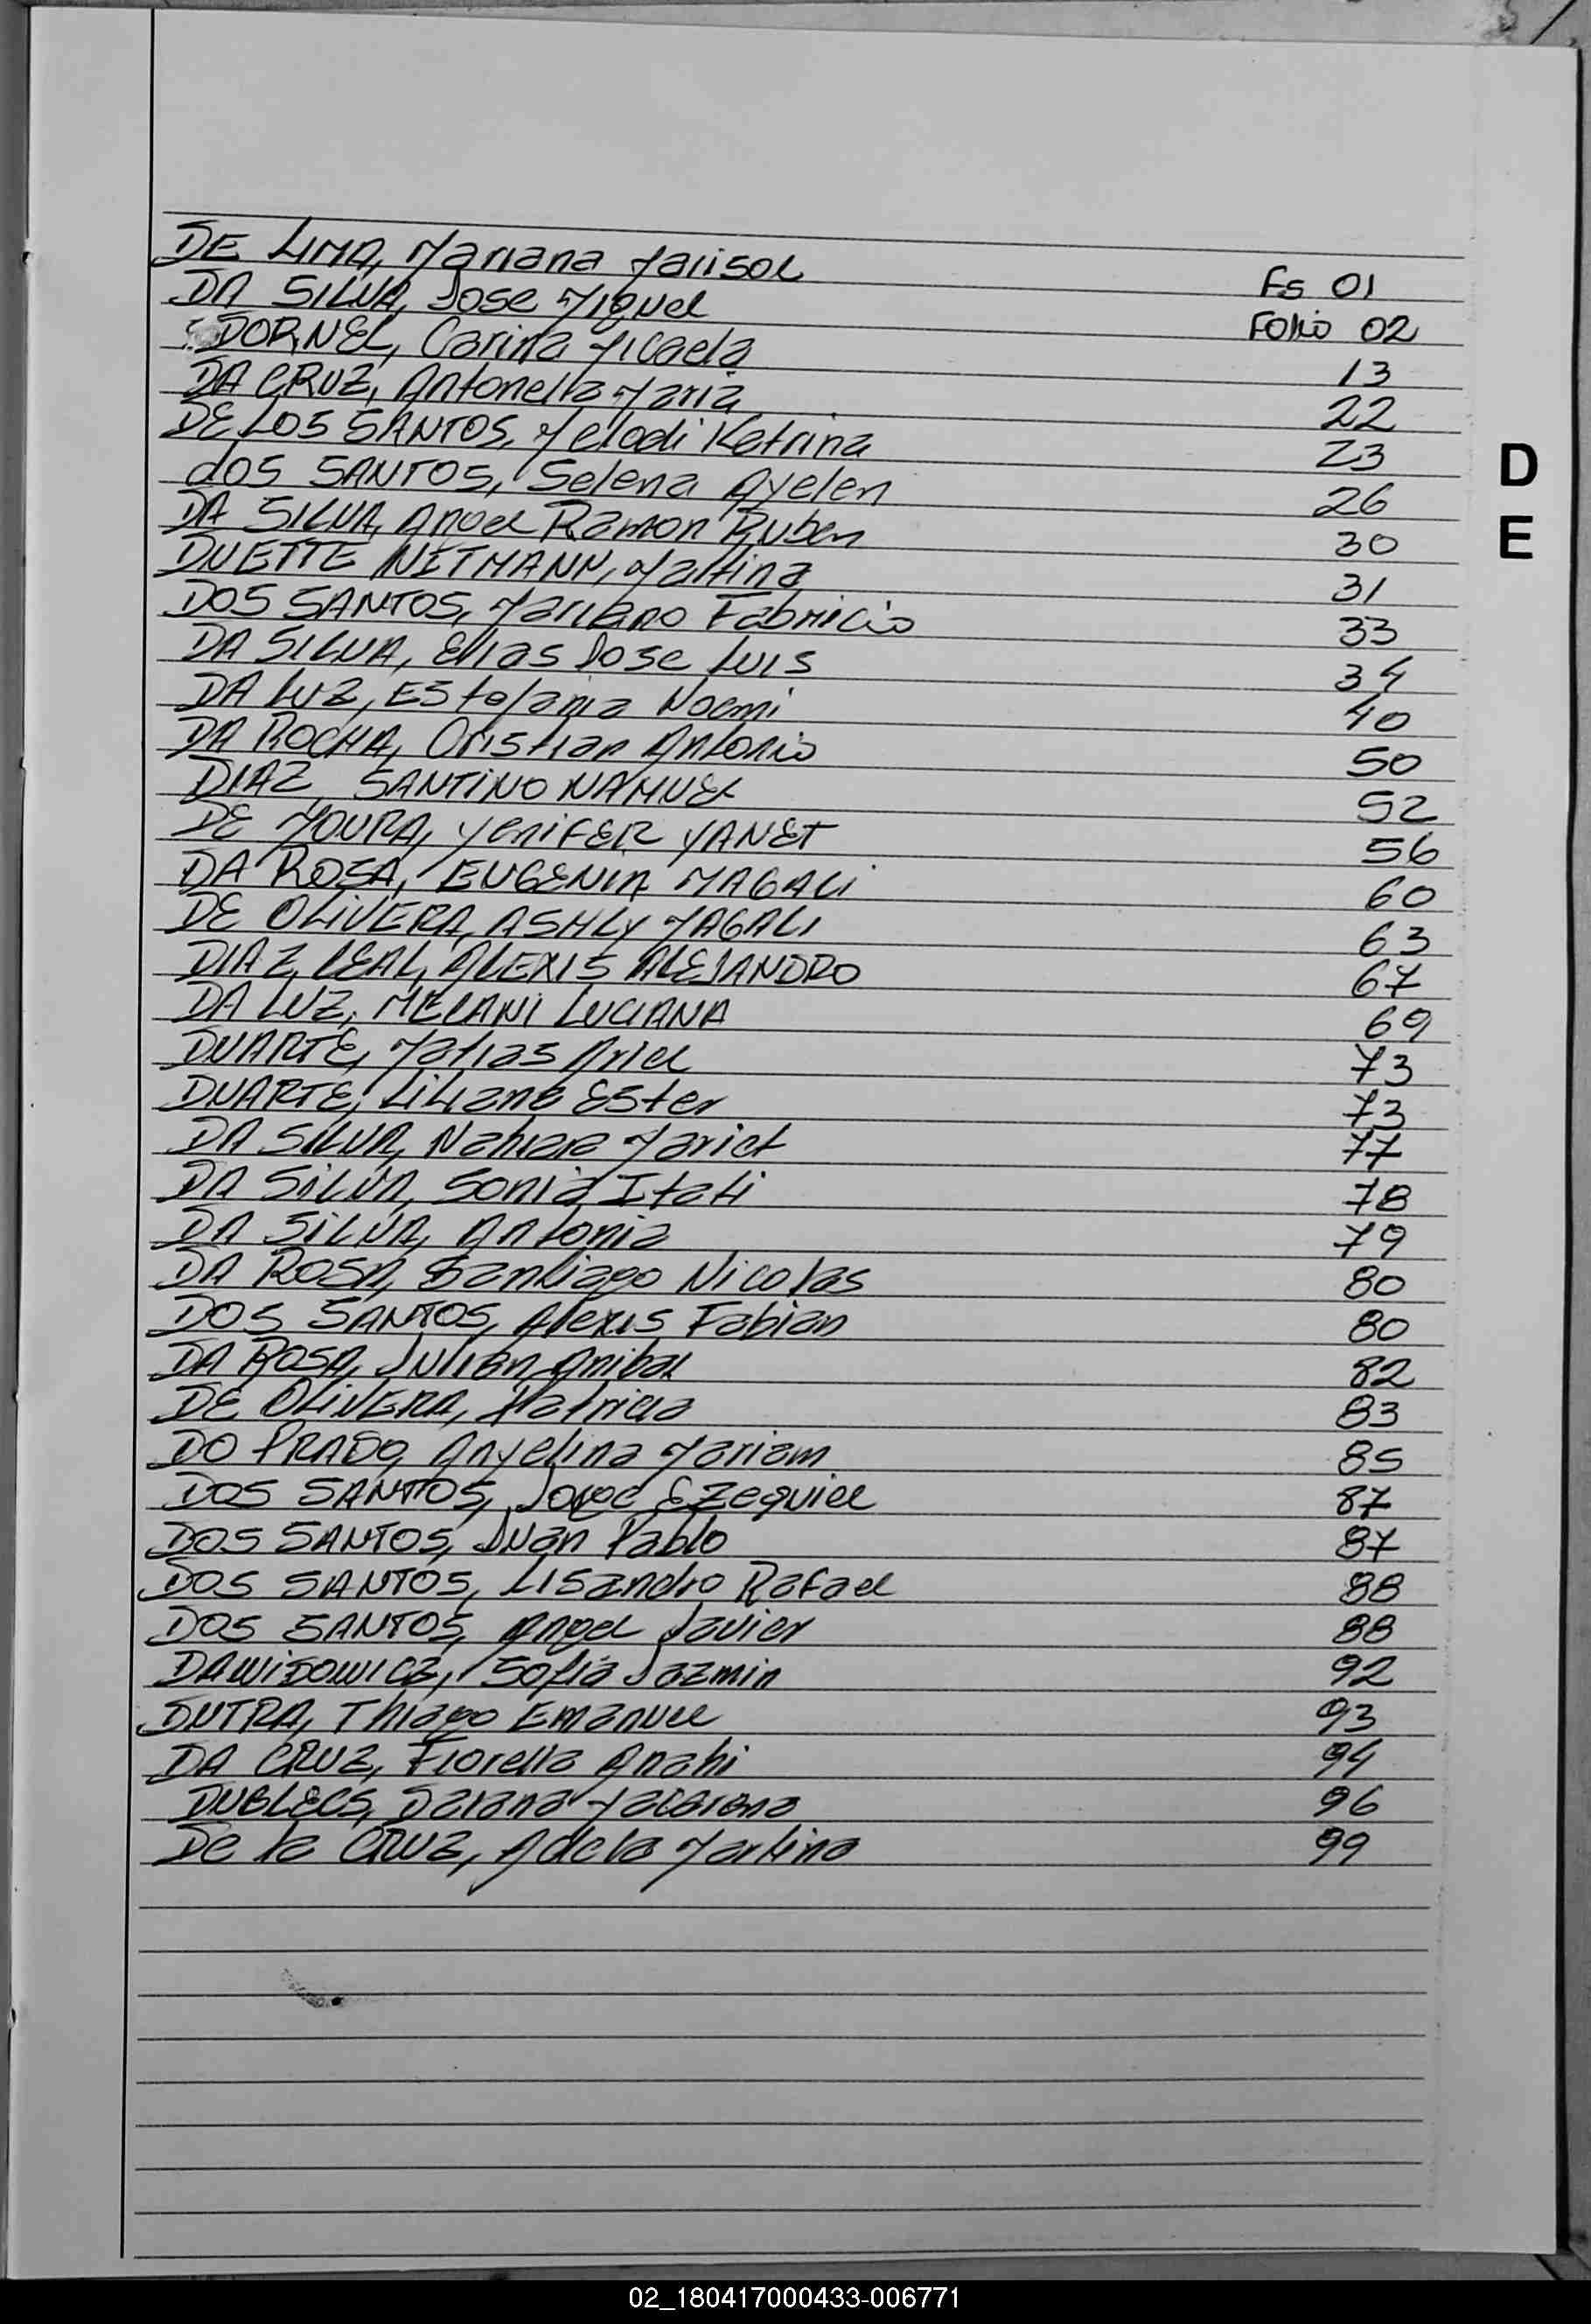 DE LIMA, Mariana Marisol Fs 01
DA SILVA, Jose Miguel Folio 02
DORNEL, Carina Micaela 13
DA CRUZ, Antonella Maria 22
DE LOS SANTOS, Melodi Katrina 23
dOS SANTOS, Selena Ayelen 26
DA SILVA, Angel Ramon Ruben 30
DUETTE NITMANN, Martina 31
DOS SANTOS, Marciano Fabricio 33
DA SILVA, Elias Jose Luis 34
DA LUZ, Estefania Noemi 40
DA ROCHA, Cristian Antonio 50
DIAZ, SANTINO NAHUEL 52
DE MOURA, YENIFER YANET 56
DA ROSA, EUGENIA MAGALI 60
DE OLIVERA, ASHLY MAGALI 63
DIAZ LEAL, ALEXIS ALEJANDRO 67
DA LUZ, MELANI LUCIANA 69
DUARTE, Matias Ariel 73
DUARTE, Liliana Ester 73
DA SILVA, Nahiara Mariet 77
DA SILVA, Sonia Itati 78
DA SILVA, Antonia 79
DA ROSA, Santiago Nicolas 80
DOS SANTOS, Alexis Fabian 80
DA ROSA, Julian Anibal 82
DE OLIVERA, Patricia 83
DO PRADO, Anyelina Mariam 85
DOS SANTOS, Jorge Ezequiel 87
DOS SANTOS, Juan Pablo 87
DOS SANTOS, Lisandro Rafael 88
DOS SANTOS, Angel Javier 88
DAWIDOWICZ, Sofia Jazmin 92
DUTRA, Thiago Emanuel 93
DA CRUZ, Fiorella Anahi 94
DUBLECS, Daiana Macarena 96
De la CRUZ, Adela Martina 99
D
E
02_180417000433-006771